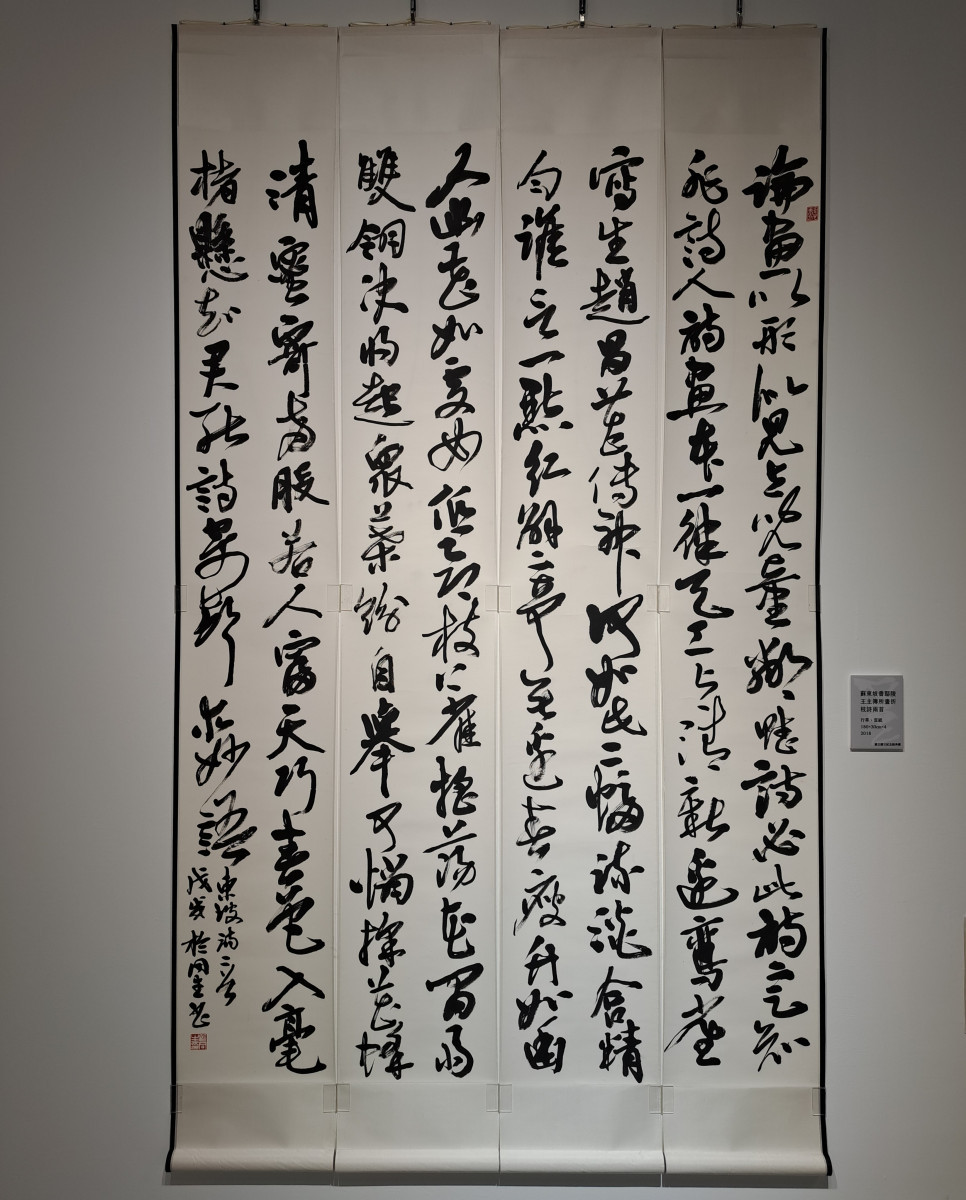 論畫以形似見与兒童鄰賦詩必此詩定知
非詩人詩畫本一律天工与清新邊鸞雀
寫生趙昌花傳神何如此二幅疏澹含精
勻誰言一點紅解寄無邊春瘦竹如幽
人幽花如處女低昂枝上雀搖蕩花間雨
雙翎決將起衆葉紛自舉可惱採花蜂
清蜜寄兩股若人富天巧春色入毫
楮懸知君能詩寄聲求妙語
東坡詩二首
戊戌
蘇東坡書鄢陵
王主簿所畫折
枝詩兩首
行草、宣紙
2018